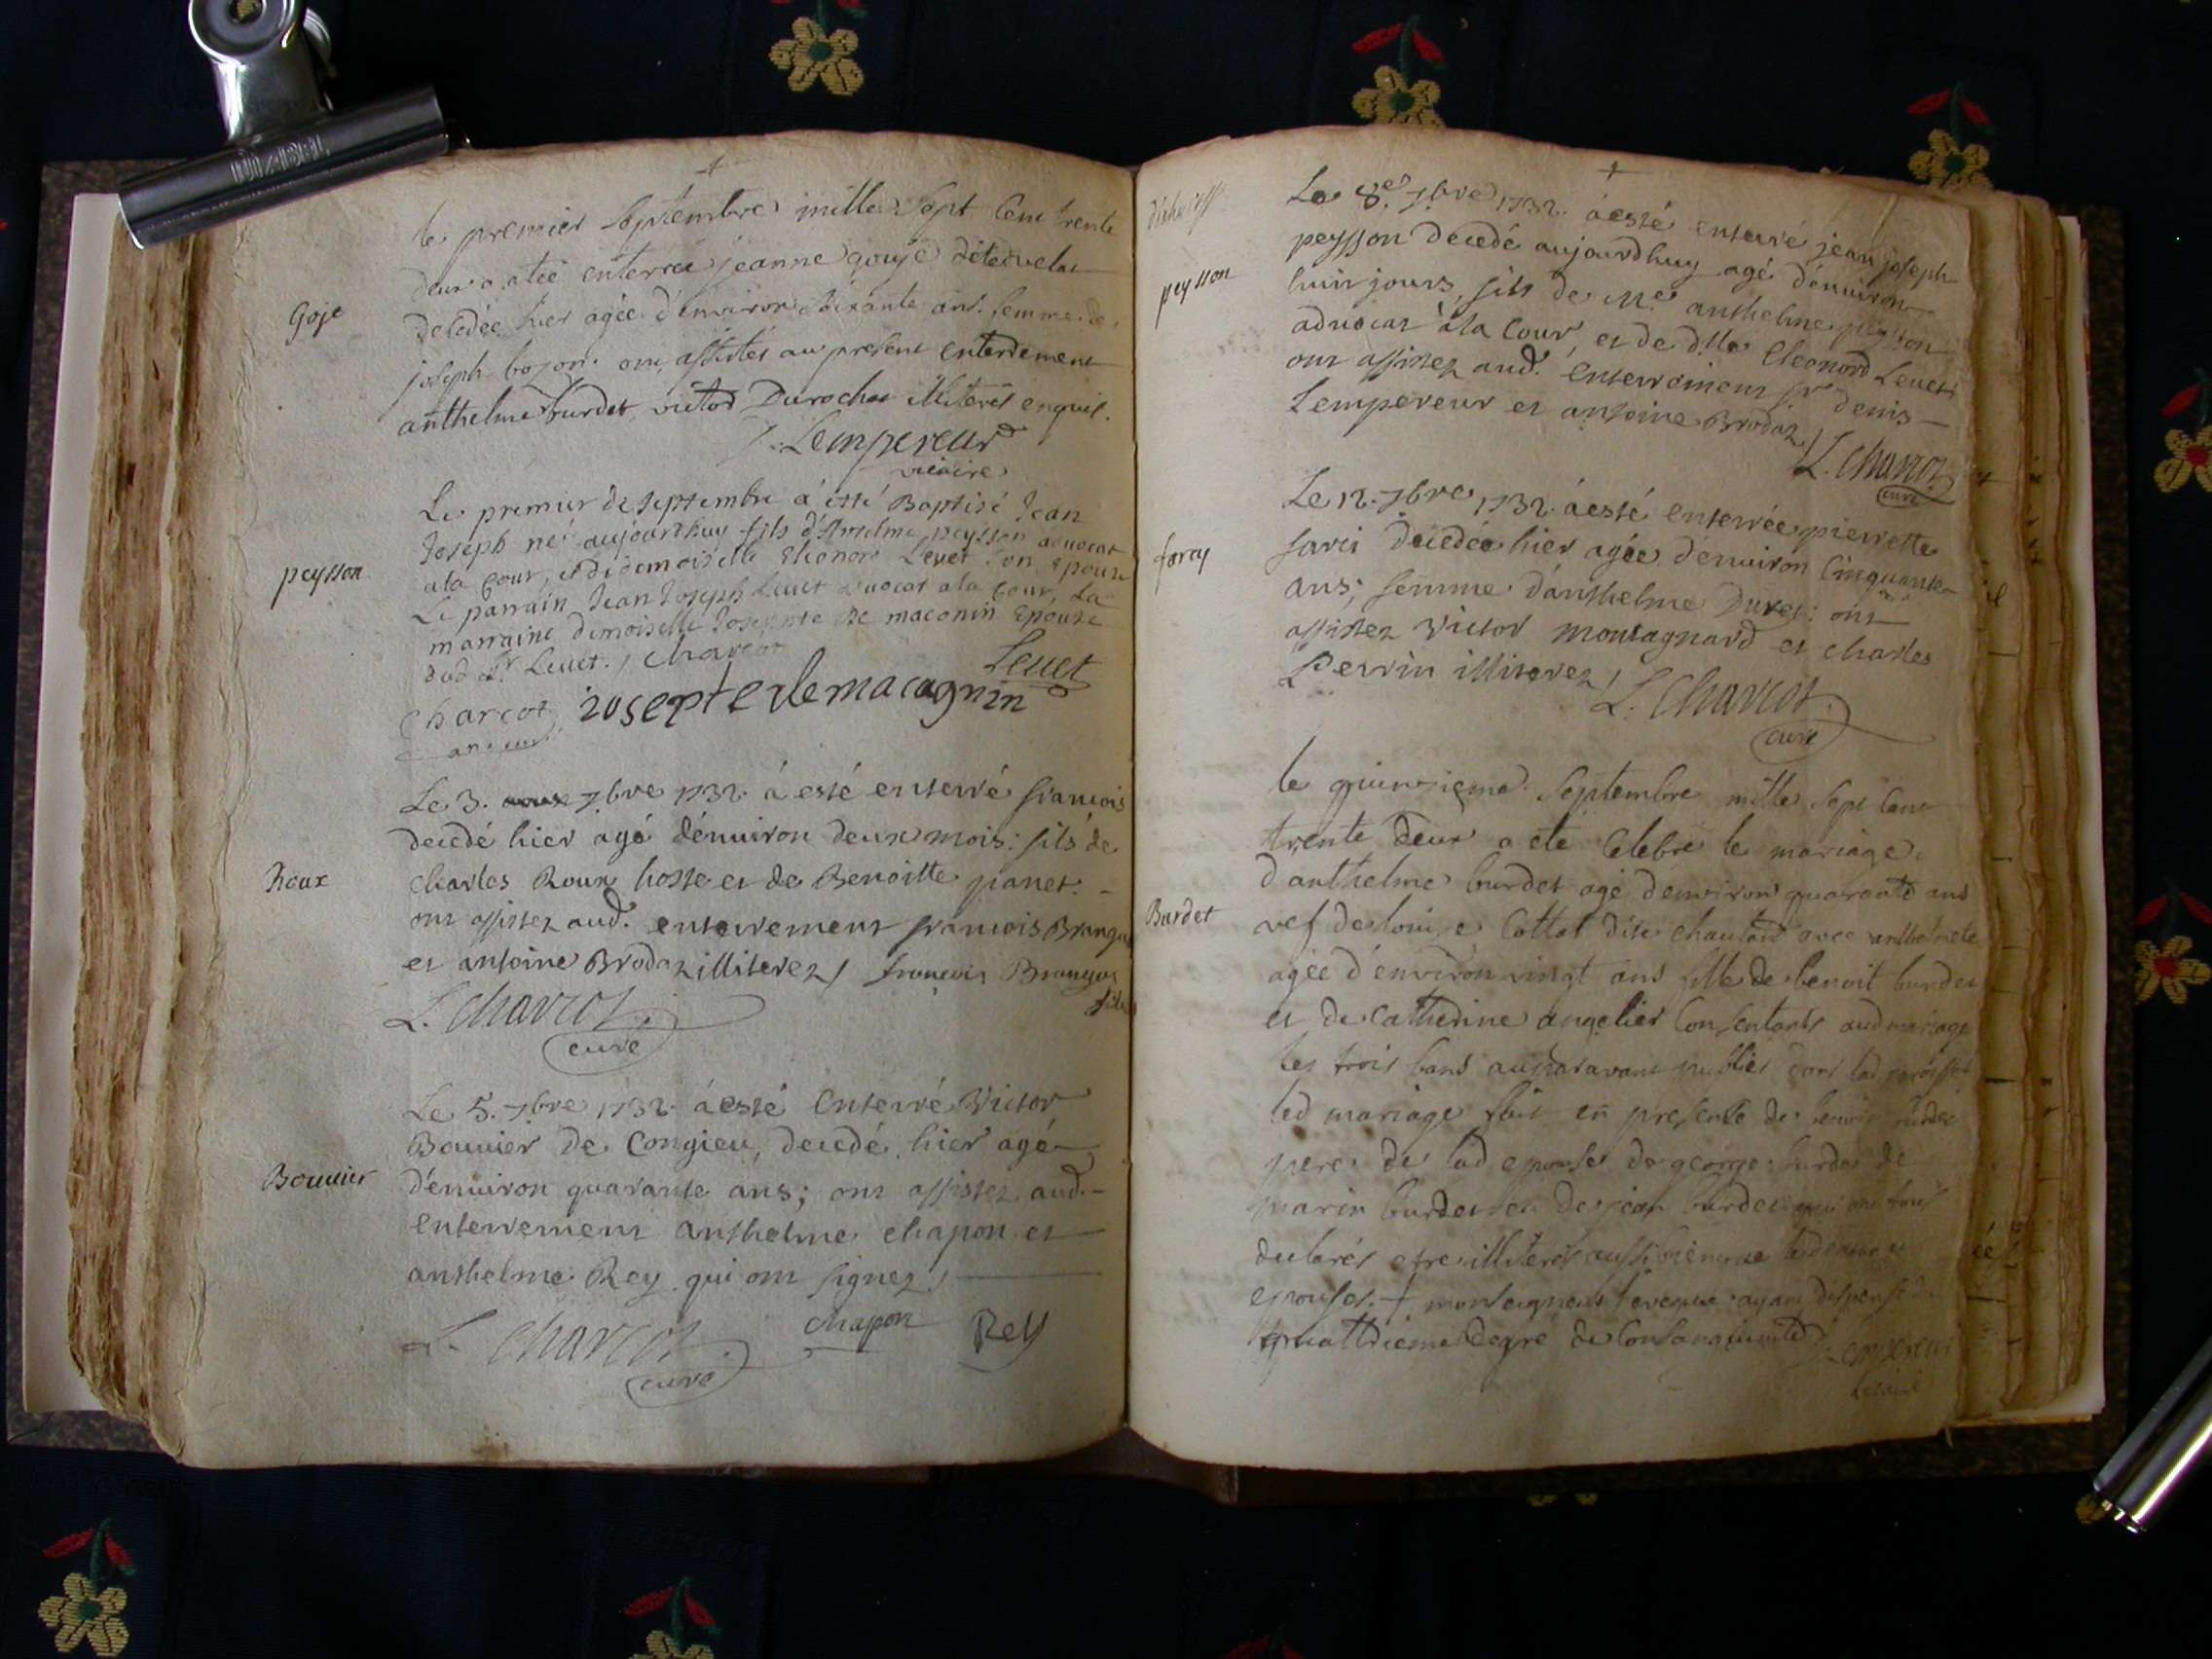 le premier Septembre mille Sept Cent trente
deux a été enterrée jeanne gouje
decedée hier agée d'environ soixante ans. femme de
joseph bojon. ont assistés au present enterrement
anthelme burdet victor Durochat illiterés enquis.
Lempereur
vicaire
Goje
Le premier de Septembre a esté Baptisé Jean
Joseph né aujourdhuy fils d'Anselme peysson advocat
a la Cour, et di demoiselle Eleonore Leuet son Epouse
Le parrain Jean Joseph Leuet avocat a la Cour, La
marraine demoiselle Josephte de maconin Epouse
dud Sr. Leuet. / Charcot
peysson
Leuet
Charcot iosepte de macagnin
Le 3. 7bre 1732 á esté enterré francois
decedé hier agé d'enuiron deux mois: fils de
charles Roux hoste et de Benoitte panet. -
ont assistez aud. enterrement francois Brangu
et antoine Brodaz illiterez / françois Brangus
fils
Roux
L. Charcot.
curé
Le 5. 7bre 1732. á esté enterré Victor
Bouuier de Congieu, decedé hier agé
d'enuiron quarante ans; ont assistez aud. -
enterrement anthelme chapon et
anthelme Rey qui ont signez /
Bouuier
L. Charcot. chapon Rey
curé
Le 8e. 7bre 1732. á esté enterré jean joseph
peysson decedé aujourdhuy agé d'enuiron
huit jours, fils de Me. anthelme peysson
aduocat à la Cour, et de dlle Eleonord Leuet;
ont assistez aud. enterrement sr denis -
Lempereur et antoine Brodaz /
peysson
L. Charcot
curé
Le 12. 7bre 1732. á esté enterrée pierrette
farci decedée hier agée d'enuiron Cinquante
ans; femme d'anthelme Duret: ont
assistez Victor montagnard et charles
Perrin illiterez /
farcy
L. Charcot.
curé
le quinzieme Septembre mille Sept Cent
trente deux a eté Celebré le mariage
d'anthelme burdet agé d'environ quarante ans
vef de louise Cottat dite chautard avec anthelmete
agée d'environ vingt ans fille de benoit burdet
et de Catherine angelier Consentants aud mariage
les trois bans auparavant publiés dans lad paroisse
led mariage fait en presence de benoit burdet
pere de lad epouse de george burdet de
marin burdet et de jean burdet qui ont tous
declarés etre illiterés aussi bien que lesdits
epouses. + monseigneur l'eveque ayant dispensé du
quattrieme degré de Consanguinité
Burdet
Lempereur
vicaire